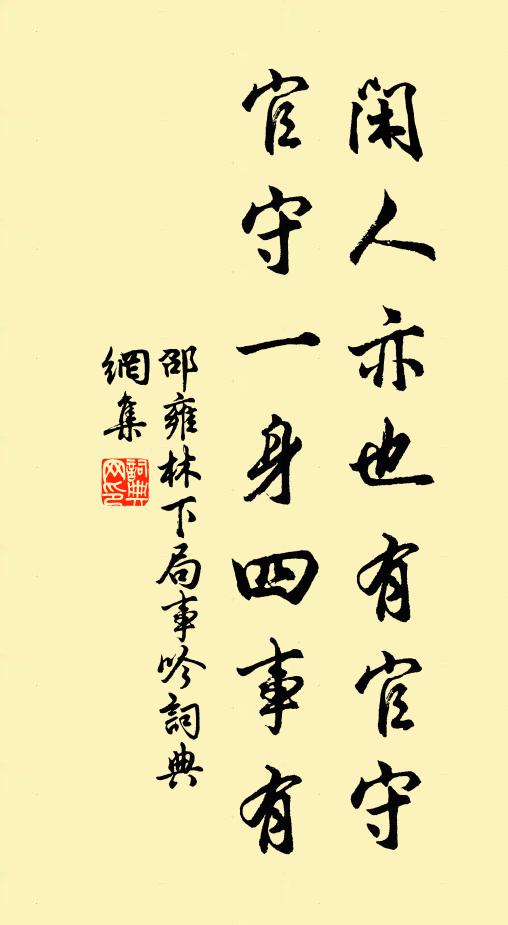 閑人亦也有官守
官守一身四事有
邵雍林下局事吟詞典
網集
詞典
网印